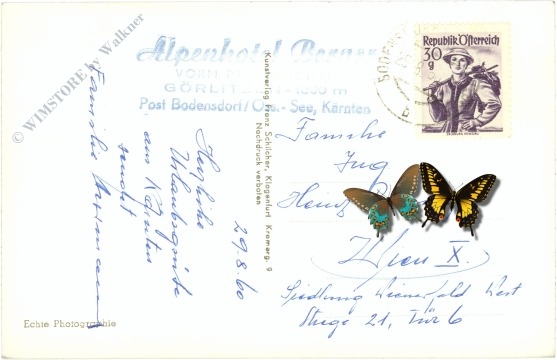 © WIMSTORE by Walkner
Alpenhotel Berner
GÖRLITZEN
Post Bodensdorf/Oss.- See, Kärnten
Republik Österreich
30
g
Kunstverlag Franz Schilcher, Klagenfurt Kromerg. 9
Nachdruck verboten
29.8.60
Herzliche
Urlaubsgrüße
aus Kärnten
sendet
Familie
Familie
Ing
Heinz
Wien X.
Siedlung Wienerfeld West
Stiege 21, Tür 6
Echte Photographie